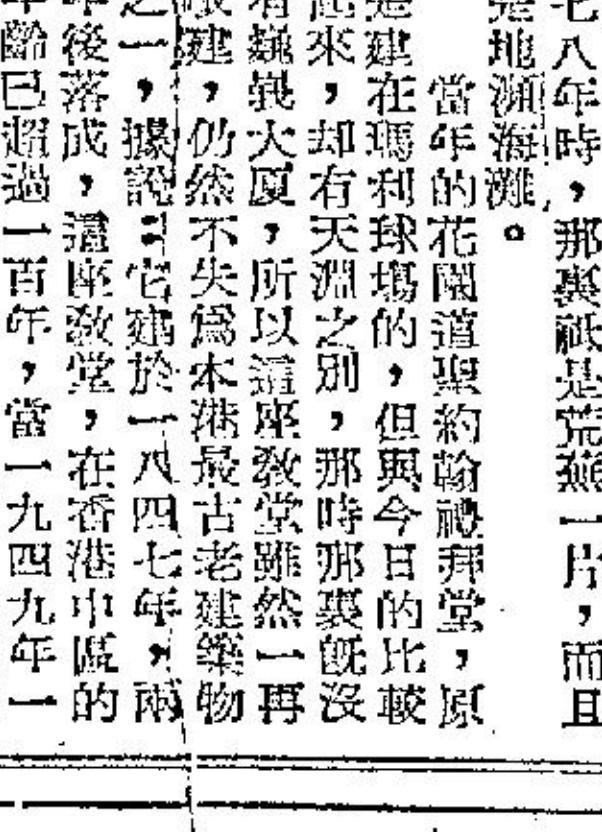 七八年時，那裏祇是荒蕪一片，而且
是地瀕海灘。
當年的花園道聖約翰禮拜堂，原
是建在瑪利球塲的，但與今日的比較
起來，却有天淵之別，那時那裏旣沒
有巍峩大厦，所以這座敎堂雖然一再
建，仍然不失爲本港最古老建築物
之一，據說：它建於一八四七年，兩
年後落成，這座敎堂，在香港中區的
年齡已超過一百年，當一九四九年一